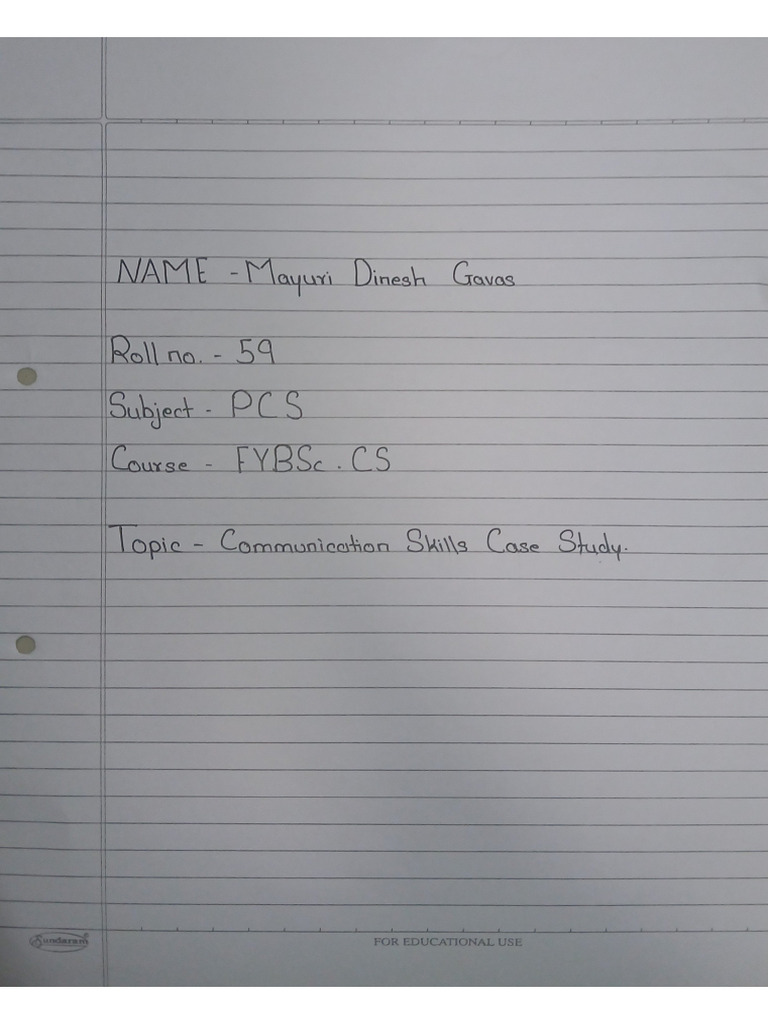 NAME - Mayuri Dinesh Gavas
Roll no. - 59
Subject - PCS
Course - FYBSc. CS
Topic - Communication Skills Case Study.
Sundaram
FOR EDUCATIONAL USE